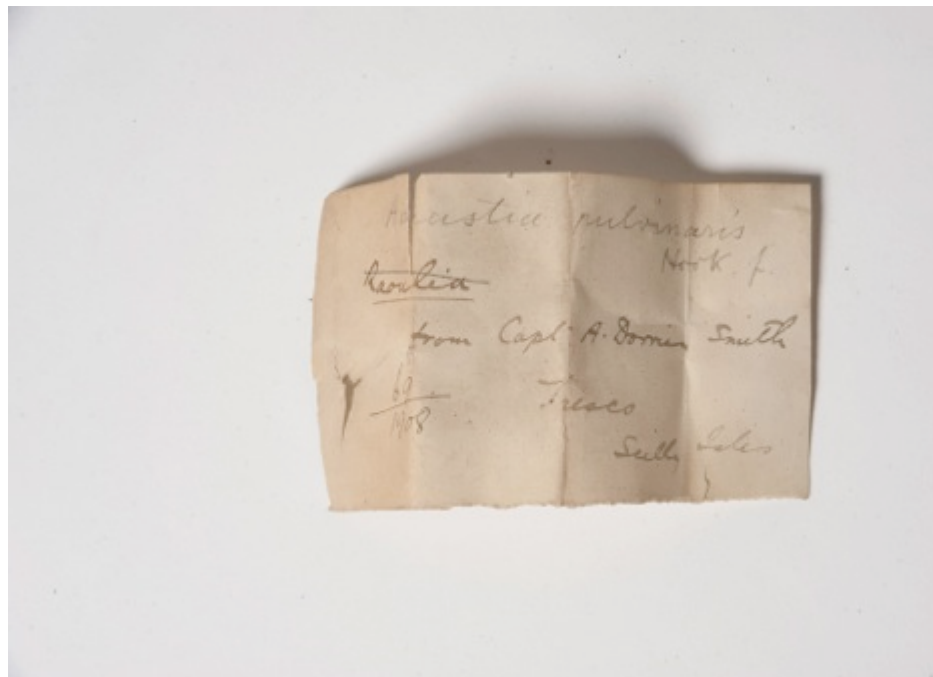 Haastia pulvinaris
Hook. f.
Raoulia
from Capt A. Dorrien Smith
69
1908
Tresco
Scilly Isles